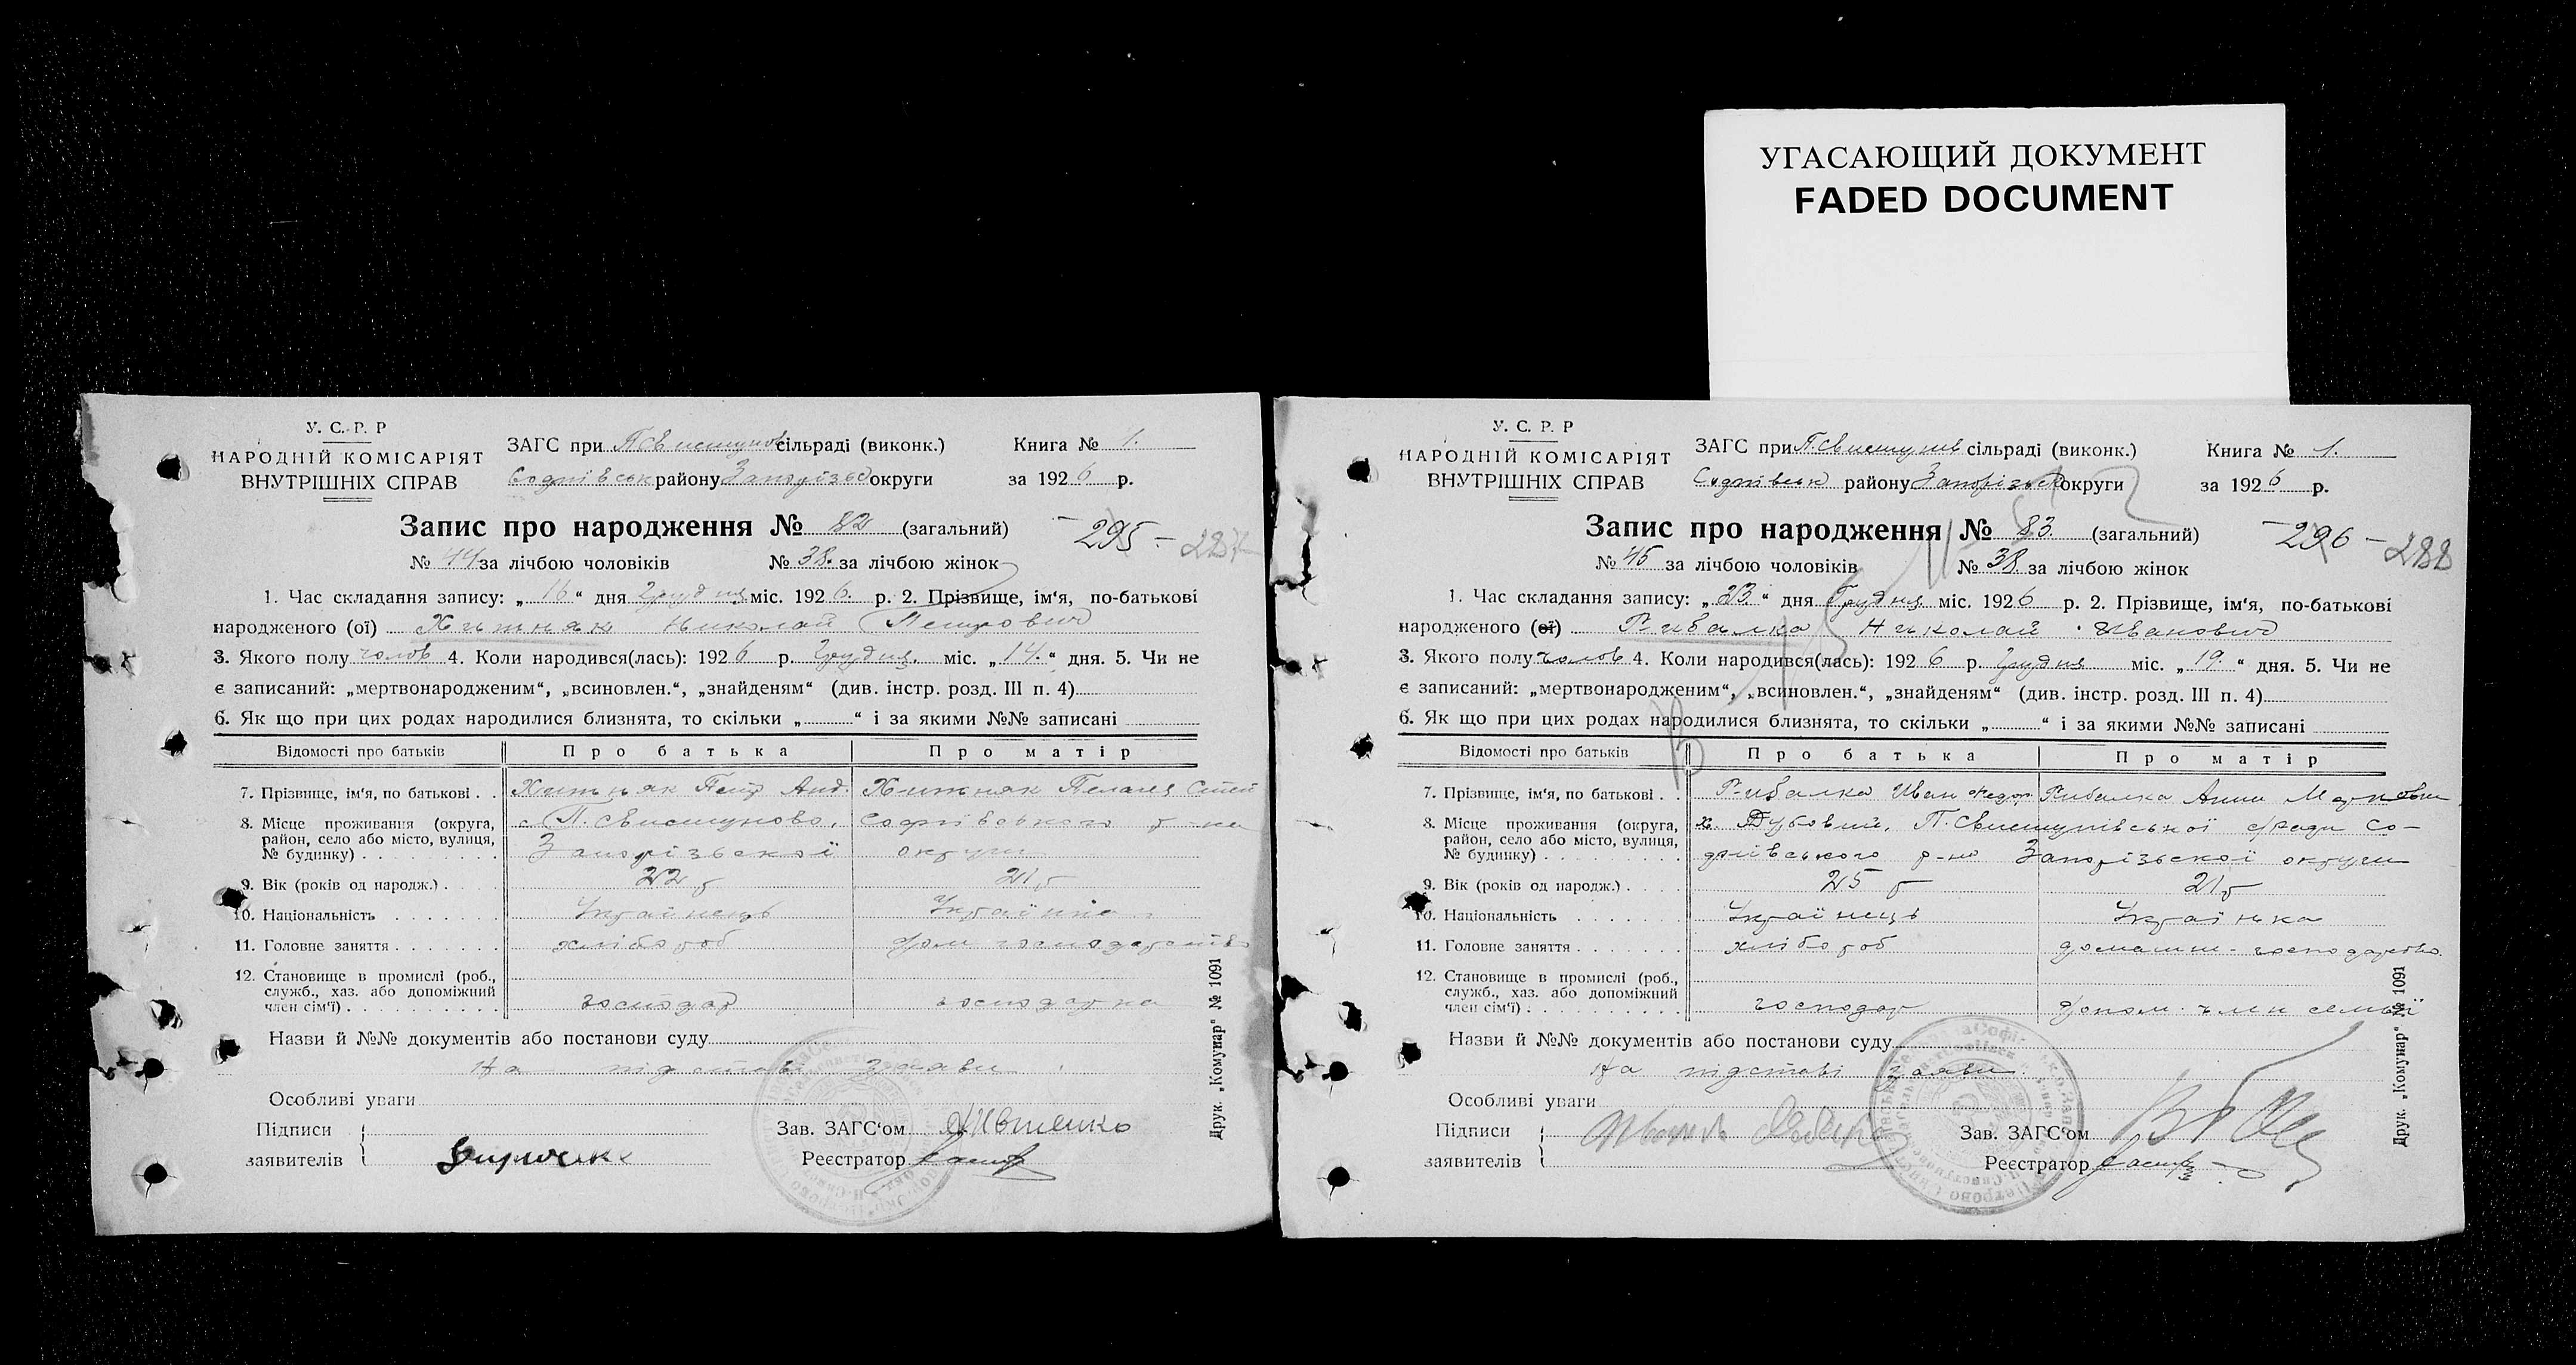 УГАСАЮЩИЙ ДОКУМЕНТ
FADED DOCUMENT
У. С. Р. Р
НАРОДНІЙ КОМІСАРІЯТ
ВНУТРІШНІХ СПРАВ
ЗАГС при П.Свистунов сільраді (виконк.)
Софіївськ району Запорізько округи
Книга № 1.
за 1926 р.
Запис про народження № 82 (загальний)
295 -
№ 44 за лічбою чоловіків № 38. за лічбою жінок
1. Час складання запису: „ 16 “ дня Грудня міс. 1926. р. 2. Прізвище, ім‘я, по-батькові
народженого (ої) Хижняк Николай Петрович
3. Якого полу чолов 4. Коли народився(лась): 1926 р. Грудня. міс. „ 14. “ дня. 5. Чи не
є записаний: „мертвонародженим“, „всиновлен.“, „знайденям“ (див. інстр. розд. III п. 4)
6. Як що при цих родах народилися близнята, то скільки „ “ і за якими №№ записані
Відомості про батьків Про батька Про матір
7. Прізвище, ім‘я, по батькові . . Хижняк Петр Анд. Хижняк Пелагея
8. Місце проживання (округа, район, село або місто, вулиця, № будинку) . . с. П. Свистуново, Софіівського р-на
Запорізької округи
9. Вік (років од народж.) . 22 р 21 р
10. Національність Українець Українка
11. Головне заняття хлібороб дом господарство
12. Становище в промислі (роб., служб., хаз. або допоміжний член сім‘ї) . господар господарка
Назви й №№ документів або постанови суду
На підставі заяви
Особливі уваги
Підписи
заявителів
Зав. ЗАГС‘ом
Реєстратор
Друк. „Комунар“ № 1091
У. С. Р. Р
НАРОДНІЙ КОМІСАРІЯТ
ВНУТРІШНІХ СПРАВ
ЗАГС при П.Свистунів сільраді (виконк.)
Софіївськ району Запорізьк округи
Книга № 1.
за 1926 р.
Запис про народження № 83. (загальний)
296 - 288
№ 45 за лічбою чоловіків № 38. за лічбою жінок
1. Час складання запису: „ 23. “ дня Грудня міс. 1926 р. 2. Прізвище, ім‘я, по-батькові
народженого (ої) Рибалка Николай Иванович
3. Якого полу чолов 4. Коли народився(лась): 1926 р. Грудня міс. „ 19. “ дня. 5. Чи не
є записаний: „мертвонародженим“, „всиновлен.“, „знайденям“ (див. інстр. розд. III п. 4)
6. Як що при цих родах народилися близнята, то скільки „ “ і за якими №№ записані
Відомості про батьків Про батька Про матір
7. Прізвище, ім‘я, по батькові . . Рибалка Иван Федор Рибалка Анна
8. Місце проживання (округа, район, село або місто, вулиця, № будинку) . х. Дубовий, П. Свистунівської с/ради Со-
фіівського р-но Запорізької округи
9. Вік (років од народж.) . 25 р 21 р
10. Національність Українець Українка
11. Головне заняття хлібороб домашн. господарство.
12. Становище в промислі (роб., служб., хаз. або допоміжний член сім‘ї) . господар допом. член семьї
Назви й №№ документів або постанови суду
На підставі заяви
Особливі уваги
Підписи
заявителів
Зав. ЗАГС‘ом
Реєстратор
Друк. „Комунар“ № 1091